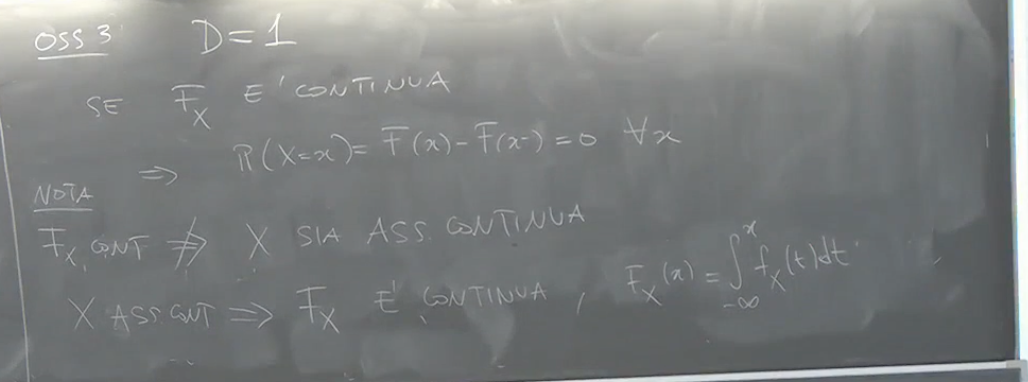 OSS 3 D=1
SE F_X E' CONTINUA
⇒ P(X=x)=F(x)-F(x-)=0 ∀x
NOTA
F_X CONT ⇏ X SIA ASS. CONTINUA
X ASS. CONT ⇒ F_X E' CONTINUA, F_X(x)=∫_{-∞}^{x} f_X(t)dt